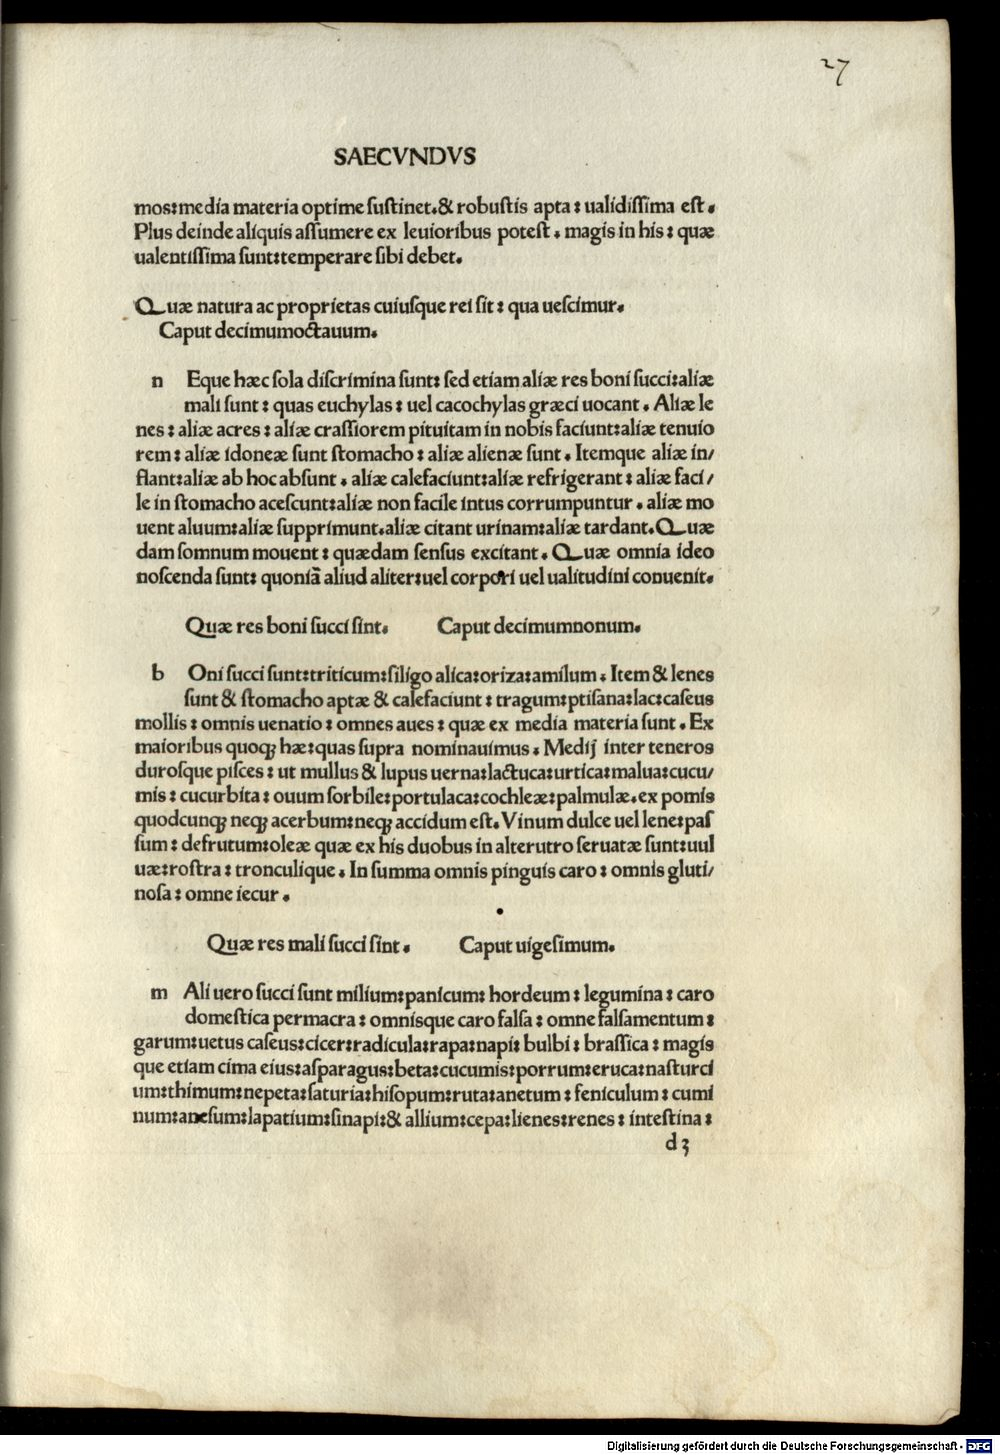 27
SAECVNDVS
mos:media materia optime ſuſtinet.& robuſtis apta : ualidiſſima eſt.
Plus deinde aliquis aſſumere ex leuioribus poteſt . magis in his : quæ
ualentiſſima ſunt:temperare ſibi debet.
Quæ natura ac proprietas cuiuſque rei ſit : qua ueſcimur.
Caput decimumoctauum.
n Eque hæc ſola diſcrimina ſunt: ſed etiam aliæ res boni ſucci:aliæ
mali ſunt : quas euchylas : uel cacochylas græci uocant . Aliæ le
nes : aliæ acres : aliæ craſſiorem pituitam in nobis faciunt:aliæ tenuio
rem : aliæ idoneæ ſunt ſtomacho : aliæ alienæ ſunt . Itemque aliæ in/
flant:aliæ ab hoc abſunt . aliæ calefaciunt:aliæ refrigerant : aliæ faci/
le in ſtomacho aceſcunt:aliæ non facile intus corrumpuntur . aliæ mo
uent aluum:aliæ ſupprimunt.aliæ citant urinam:aliæ tardant.Quæ
dam ſomnum mouent : quædam ſenſus excitant . Quæ omnia ideo
noſcenda ſunt: quoniā aliud aliter:uel corpori uel ualitudini conuenit.
Quæ res boni ſucci ſint. Caput decimumnonum.
b Oni ſucci ſunt:triticum:ſiligo alica:oriza:amilum . Item & lenes
ſunt & ſtomacho aptæ & calefaciunt : tragum:ptiſana:lac:caſeus
mollis : omnis uenatio : omnes aues : quæ ex media materia ſunt . Ex
maioribus quoqꝫ hæ:quas ſupra nominauimus . Medij inter teneros
duroſque piſces : ut mullus & lupus uerna:lactuca:urtica:malua:cucu/
mis : cucurbita : ouum ſorbile:portulaca:cochleæ:palmulæ.ex pomis
quodcunqꝫ neqꝫ acerbum:neqꝫ accidum eſt.Vinum dulce uel lene:paſ
ſum : defrutum:oleæ quæ ex his duobus in alterutro ſeruatæ ſunt:uul
uæ:roſtra : tronculique . In ſumma omnis pinguis caro : omnis gluti/
noſa : omne iecur .
Quæ res mali ſucci ſint . Caput uigeſimum.
m Ali uero ſucci ſunt milium:panicum: hordeum : legumina : caro
domeſtica permacra : omniſque caro ſalſa : omne ſalſamentum :
garum:uetus caſeus:cicer:radicula:rapa:napi: bulbi : braſſica : magis
que etiam cima eius:aſparagus:beta:cucumis:porrum:eruca:naſturci
um:thimum:nepeta:ſaturia:hiſopum:ruta:anetum : feniculum : cumi
num:aneſum:lapatium:ſinapi:& allium:cepa:lienes:renes : inteſtina :
d3
Digitalisierung gefördert durch die Deutsche Forschungsgemeinschaft - DFG